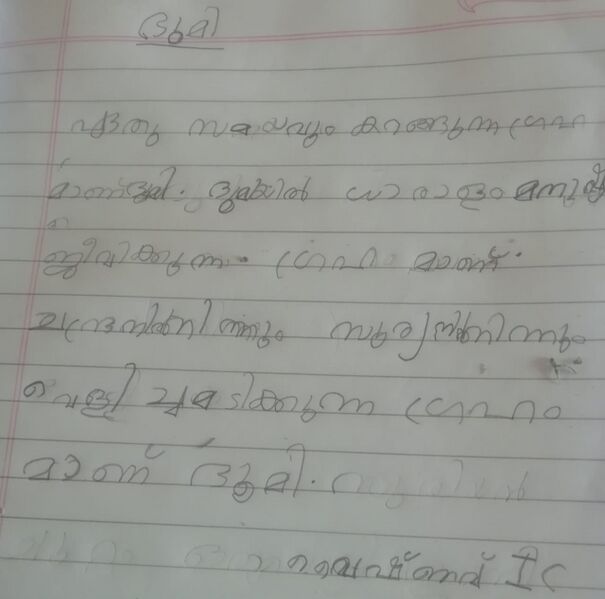 ഭൂമി
ഏതു സമയവും കറങ്ങുന്ന ഗ്രഹ
മാണ് ഭൂമി. ഭൂമിയിൽ ധാരാളം മനുഷ്യ
ജീവിക്കുന്ന ഗ്രഹ മാണ്.
ചന്ദ്രനിൽനിന്നും സൂര്യനിൽനിന്നും
വെളി ച്ചമടിക്കുന്ന ഗ്രഹം
മാണ് ഭൂമി.